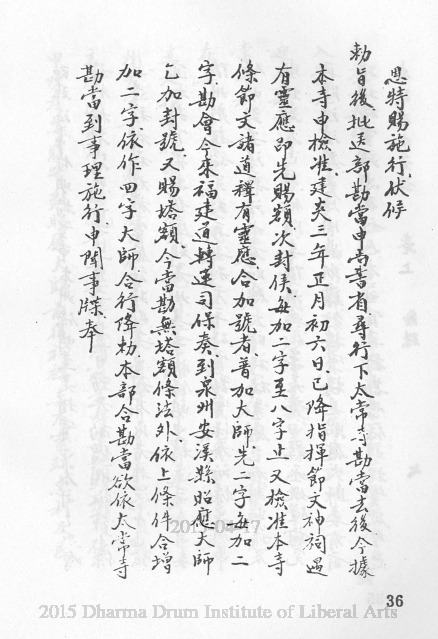 恩特賜施行伏候
勅旨後批送部勘當申尚書省尋行下太常寺勘當去後今據
本寺申檢准建炎三年正月初六日已降指揮節文神祠遇
有靈應即先賜額次封侯每加二字至八字止又檢准本寺
條節文諸道釋有靈應合加號者普加大師先二字每加二
字勘會今來福建道轉運司保奏到泉州安溪縣昭應大師
乞加封號又賜塔額今當勘無塔額條法外依上條件合增
加二字依作四字大師合行降勅本部合勘當欲依太常寺
勘當到事理施行申聞事牒奉
36
2015 Dharma Drum Institute of Liberal Arts